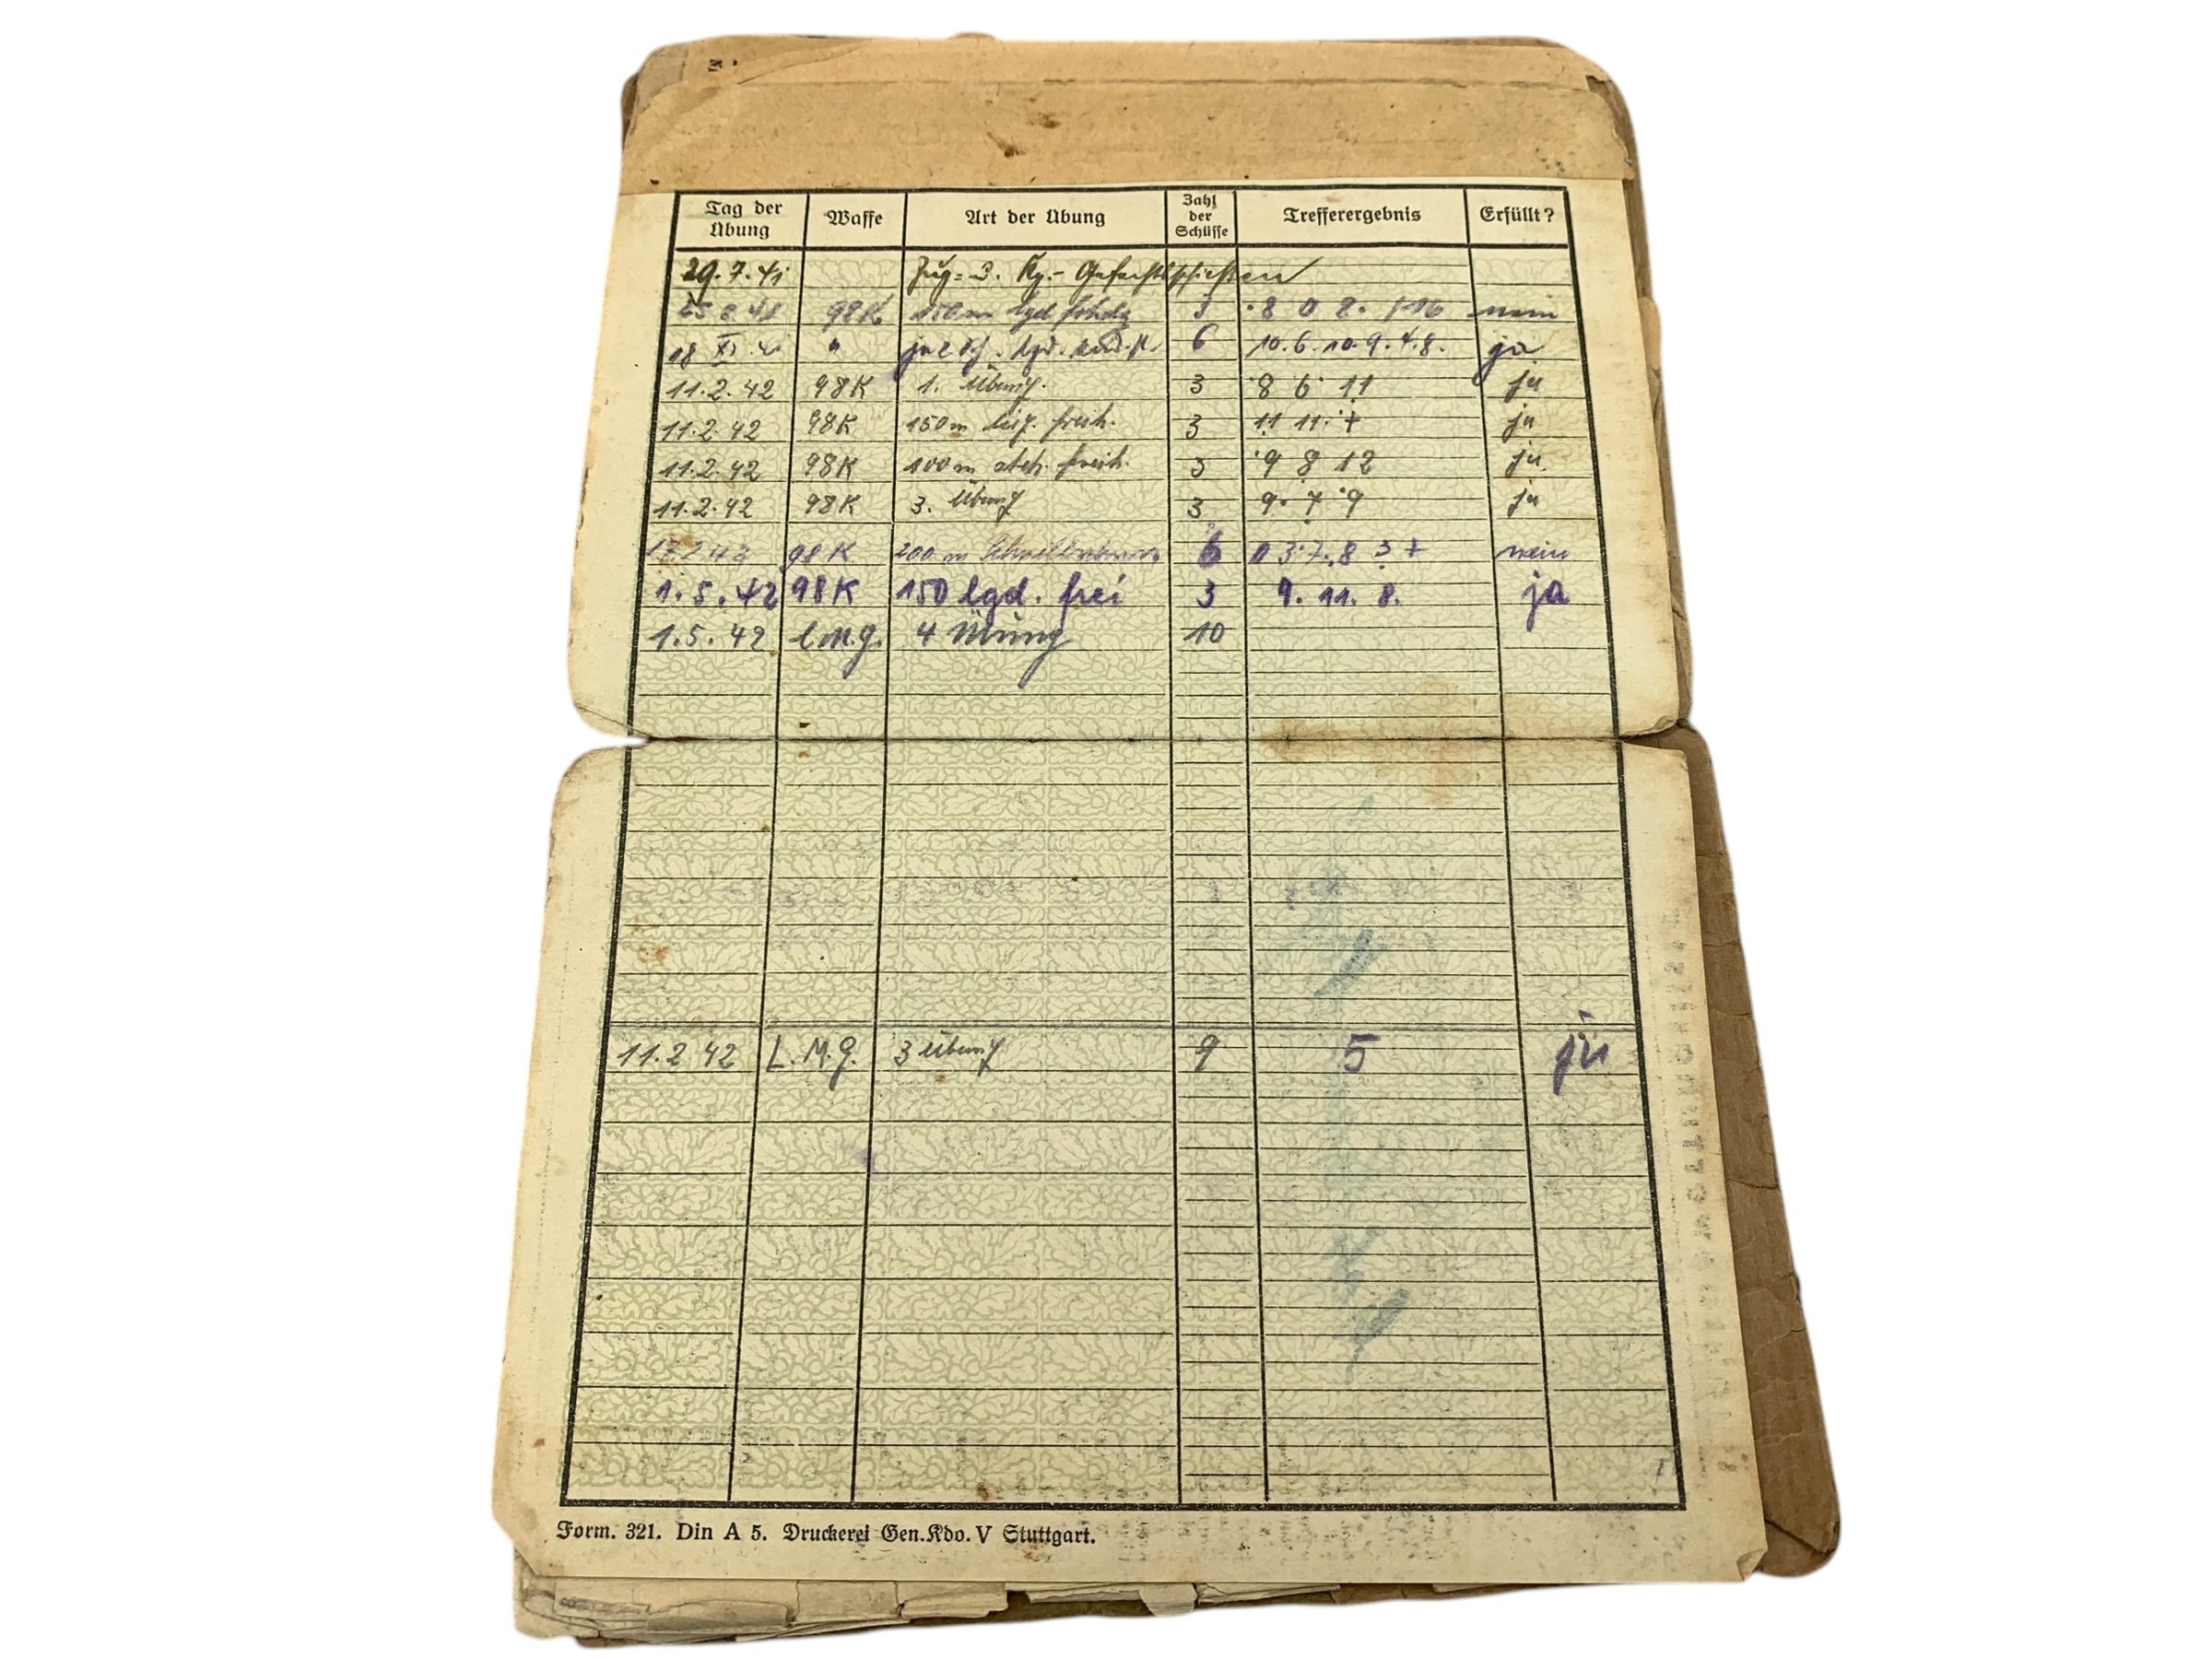 Tag der Übung Waffe Art der Übung Zahl der Schüsse Trefferergebnis Erfüllt?
29.7.41 Zug- u. Kp.- Gefechtsschießen
98K 150m 3 nein
18 XI. 41 " 6 10. 6. 10. 9. 7. 8. ja
11.2.42 98K 1. Übung. 3 8 6 11 ja
11.2.42 98K 150m lieg. freih. 3 11 11. 7 ja
11.2.42 98K 100m steh. freih. 3 9 8 12 ja
11.2.42 98K 3. Übung 3 9. 7 9 ja
98K 200 m 6 0 3. 7. 8 3 7 nein
1.5.42 98K 150 lgd. frei 3 9. 11. 8. ja
1.5.42 l.M.G. 4 Übung 10
11.2 42 L.M.G. 3 Übung 9 5 ja
Form. 321. Din A 5. Druckerei Gen.Kdo. V Stuttgart.